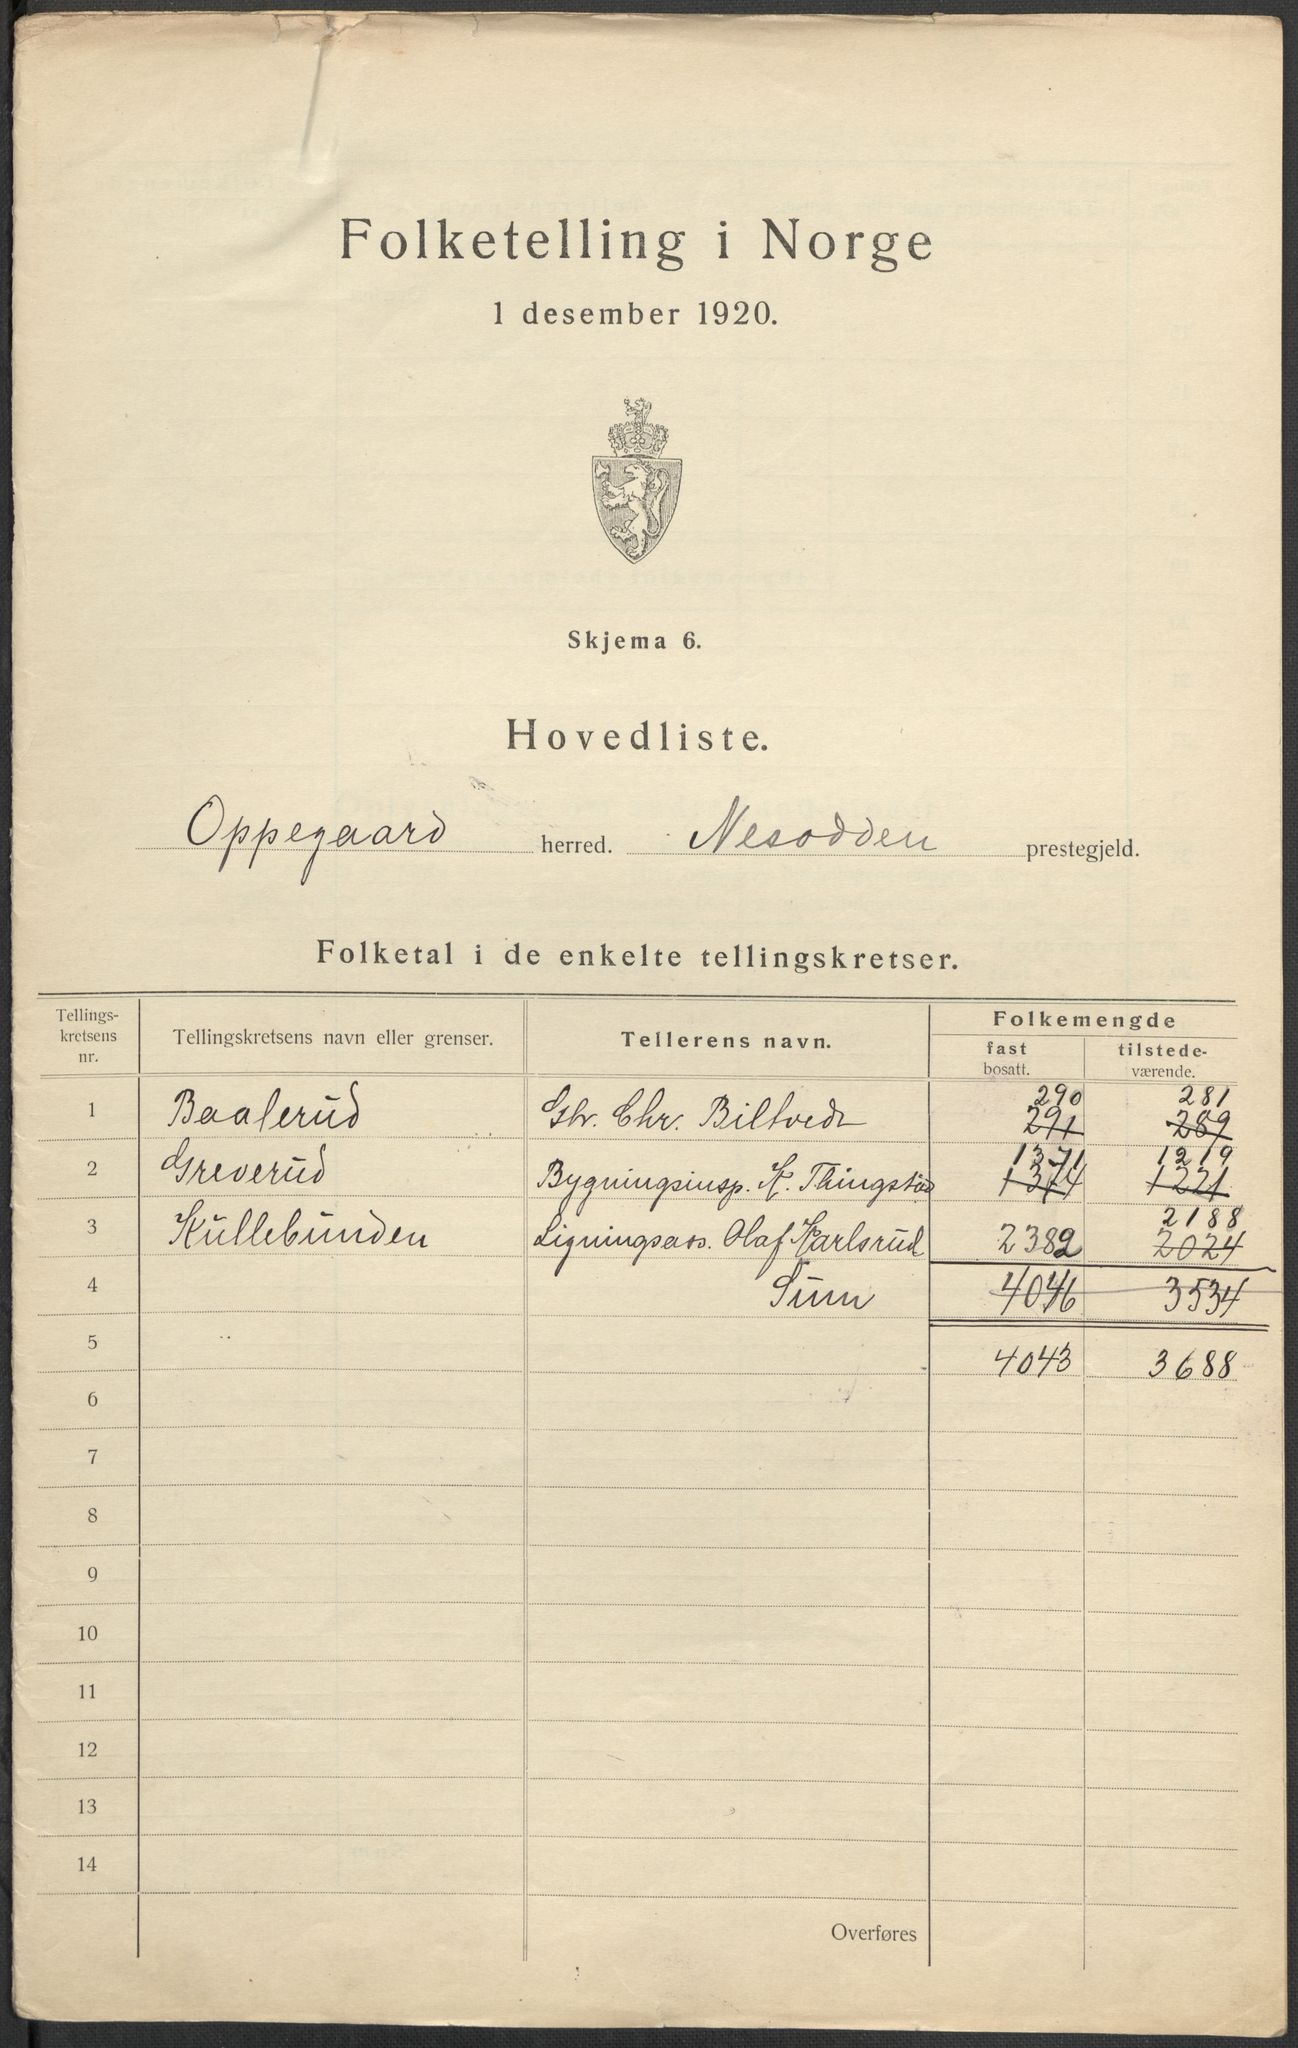 Folketelling i Norge
1 desember 1920.
Skjema 6.
Hovedliste.
Oppegaard herred. Nesodden prestegjeld.
Folketal i de enkelte tellingskretser.
Tellings-
kretsens
nr.
Tellingskretsens navn eller grenser.
Tellerens navn.
Folkemengde
fast
bosatt.
tilstede-
værende.
290 281
1 Baalerud Gbr. Chr. Biltvedt 291 289
1371 1219
2 Greverud Bygningsinsp. K. Thingstad 1374 1221
2188
3 Kullebunden Ligningsass. Olaf Karlsrud 2382 2024
4 Sum 4046 3534
5 4043 3688
6
7
8
9
10
11
12
13
14
Overføres